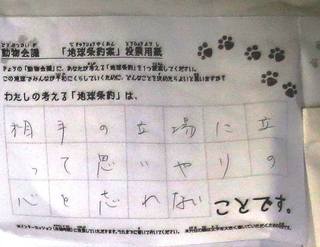 動物会議 「地球条約案」投票用紙
きょうの「動物会議」に、あなたが考える「地球条約」を1つ提案してください。
この地球でみんなが平和にくらしていくために、どんなことを決めたらよいと思いますか?
わたしの考える「地球条約」は、
相手の立場に立
って思いやりの
心を忘れない ことです。